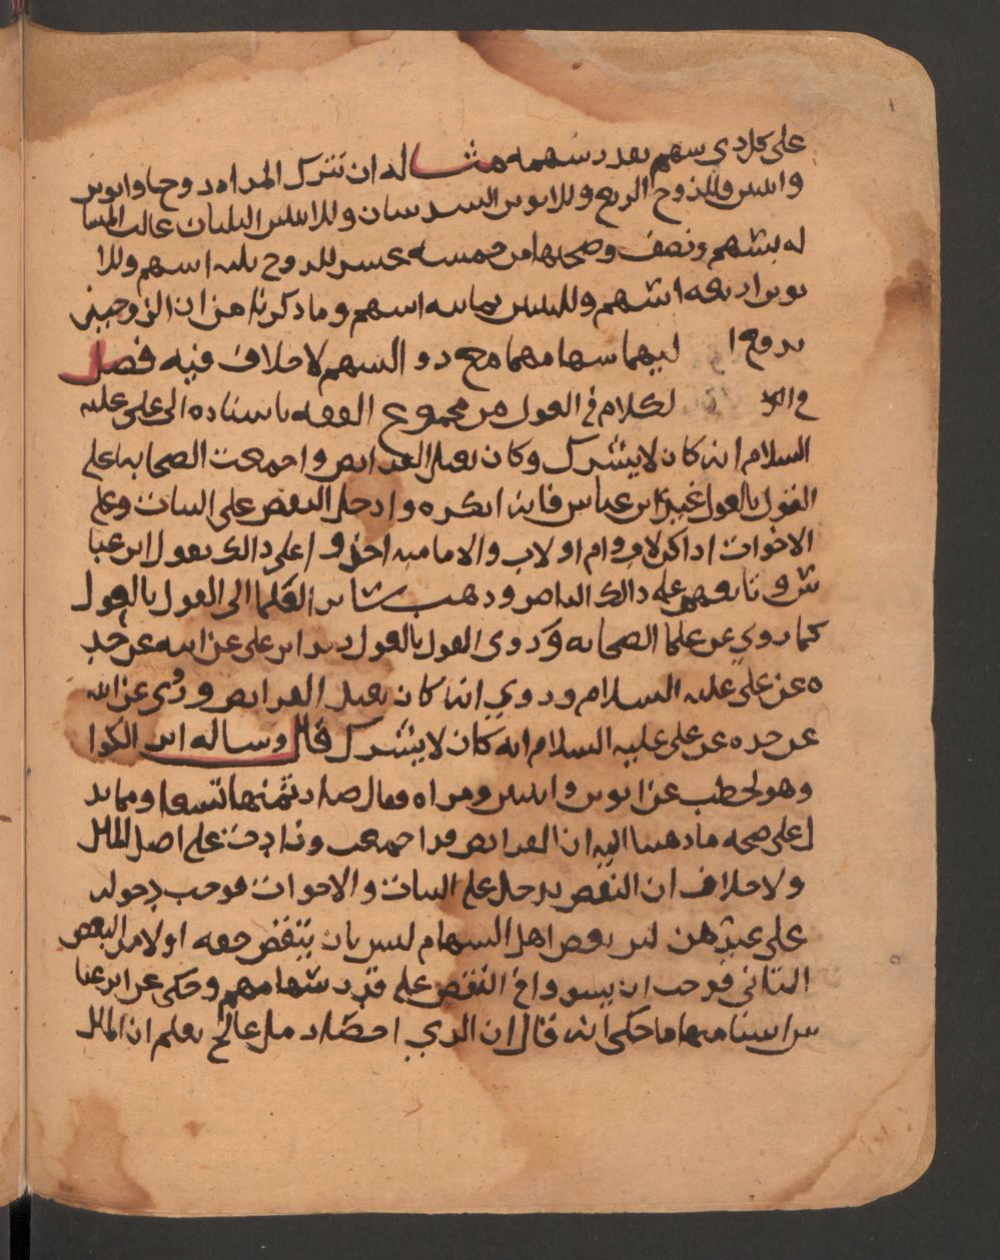 على كل ذي سهم بقدر سهمه مثاله ان تترك المراه زوجا وابوين
وابنتين فللزوج الربع وللابوين السدسان وللابنتين الثلثان عالت المسا
له بسهم ونصف وصحتها من خمسه عشر للزوج ثلثه اسهم وللا
بوين اربعه اسهم وللبنتين ثمانيه اسهم وما ذكرنا من ان الزوجين
يدفع ا ليهما سهامهما مع ذو السهم لا خلاف فيه فصل
في الكلام في العول من مجموع الفقه باسناده الى علي عليه
السلام انه كان لا يشرك وكان يعيل الفرايض واجمعت الصحابه على
القول بالعول غير ابن عباس فانه انكره وادخل النقص على البنات وعلى
الاخوات اذا كن لاب وام او لاب والاماميه على ذالك بقول ابن عبا
س وتابعهم على ذالك الناصر وذهب ساير العلما الى القول بالعول
كما روي عن علما الصحابه وروى القول بالعول زيد ابن علي عن ابيه عن جد
ه عن علي عليه السلام وروي انه كان يعيل الفرايض وروى عن ابيه
عن جده عن علي عليه السلام انه كان لا يشرك قال وساله ابن الكوا
وهو يخطب عن ابوين وابنتين ومراه فقال صار ثمنها تسعا ومما يد
ل على صحه ما ذهبنا اليه ان الفرايض قد اجتمعت وزادت على اصل المال
ولا خلاف ان النقص يدخل على البنات والاخوات فوجب دخوله
على غيرهن لان بعض اهل السهام ليس بان ينقص حقه اولا من البعض
الثاني فوجب ان يتساووا في النقص على قدر سهامهم وحكي عن ابن عبا
س اشيا منها ما حكي انه قال ان الذي احصا رمل عالج يعلم ان المال